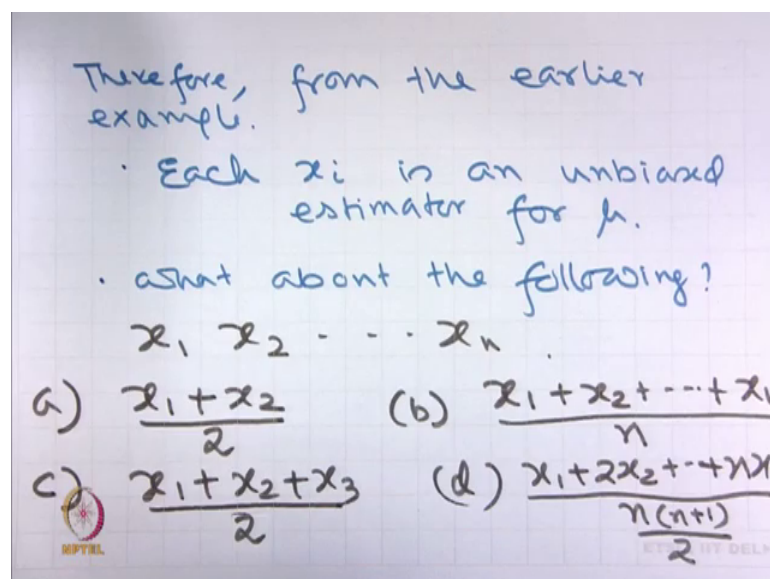 Therefore, from the earlier
example.
· Each xi is an unbiased
estimator for μ.
· What about the following?
x₁ x₂ - - - xₙ .
a) (x₁ + x₂)/2 (b) (x₁ + x₂ + --- + x₁)/n
c) (x₁ + x₂ + x₃)/2 (d) (x₁ + 2x₂ + -- + nx)/(n(n+1)/2)
NPTEL
ETSC, IIT DELH